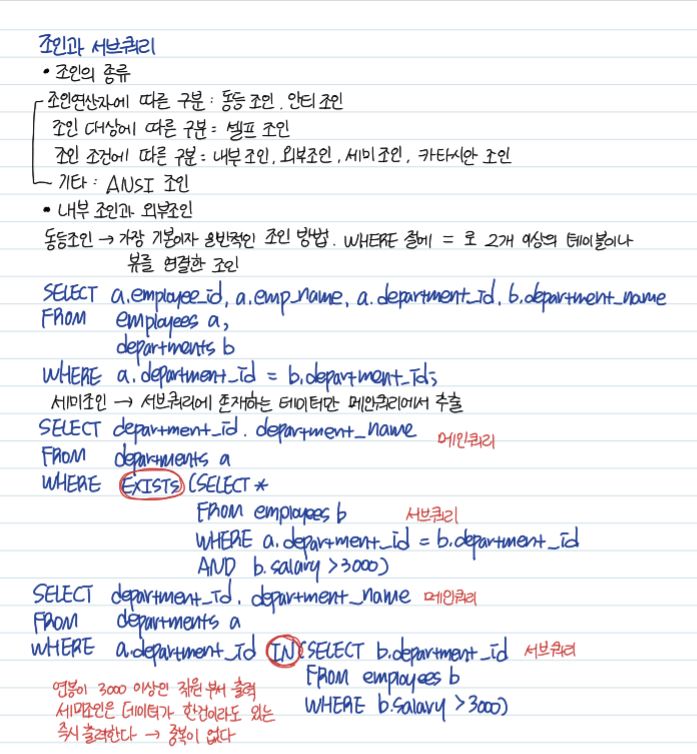 조인과 서브쿼리
• 조인의 종류
조인연산자에 따른 구분 : 동등 조인, 안티 조인
조인 대상에 따른 구분 = 셀프 조인
조인 조건에 따른 구분 = 내부 조인, 외부조인, 세미 조인, 카타시안 조인
기타 : ANSI 조인
• 내부 조인과 외부조인
동등조인 → 가장 기본이자 일반적인 조인 방법. WHERE 절에 = 로 2개 이상의 테이블이나
뷰를 연결한 조인
SELECT a.employee_id, a.emp_name, a.department_id, b.department_name
FROM employees a,
departments b
WHERE a.department_id = b.department_id;
세미조인 → 서브쿼리에 존재하는 데이터만 메인쿼리에서 추출
SELECT department_id. department_name 메인쿼리
FROM departments a
WHERE EXISTS (SELECT *
FROM employees b 서브쿼리
WHERE a.department_id = b.department_id
AND b.salary >3000)
SELECT department_id. department_name 메인쿼리
FROM departments a
WHERE a.department_id IN (SELECT b.department_id 서브쿼리
FROM employees b
WHERE b.salary >3000)
연봉이 3000 이상인 직원 부서 출력
세미조인은 데이터가 한건이라도 있는
즉시 출력한다 → 중복이 없다